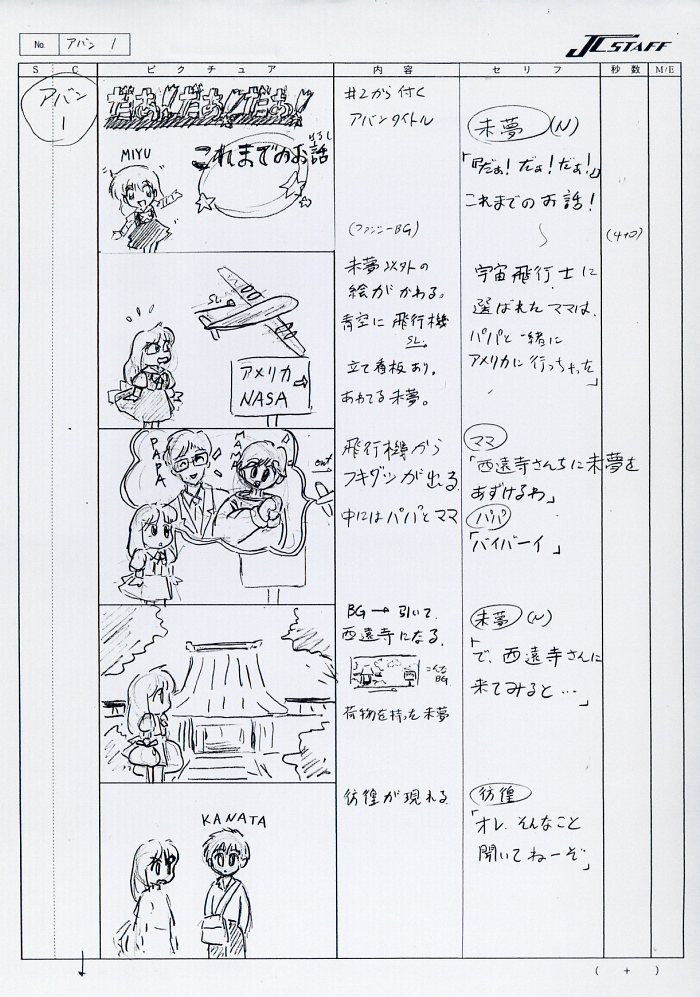 No.
アバン 1
JCSTAFF
S
C
ピクチュア
内容
セリフ
秒数
M/E
アバン
1
だぁ!だぁ!だぁ!
これまでのお話
はなし
MIYU
#2から付く
アバンタイトル
(ファンシーBG)
未夢(N)
「『だぁ!だぁ!だぁ!』
これまでのお話!
(4+0)
SL.
アメリカ
NASA
未夢以外の
絵がかわる。
青空に飛行機
SL.
立て看板あり。
あわてる未夢。
宇宙飛行士に
選ばれたママは、
パパと一緒に
アメリカに行っちゃった」
PAPA
MAMA
out
飛行機から
フキダシが出る
中にはパパとママ
ママ
「西遠寺さんちに未夢を
あずけるわ」
パパ
「バイバーイ」
BG → 引いて、
西遠寺になる。
こんな
BG.
荷物を持った未夢
未夢(N)
「で、西遠寺さんに
来てみると…」
KANATA
彷徨が現れる
彷徨
「オレ、そんなこと
聞いてねーぞ」
( + )